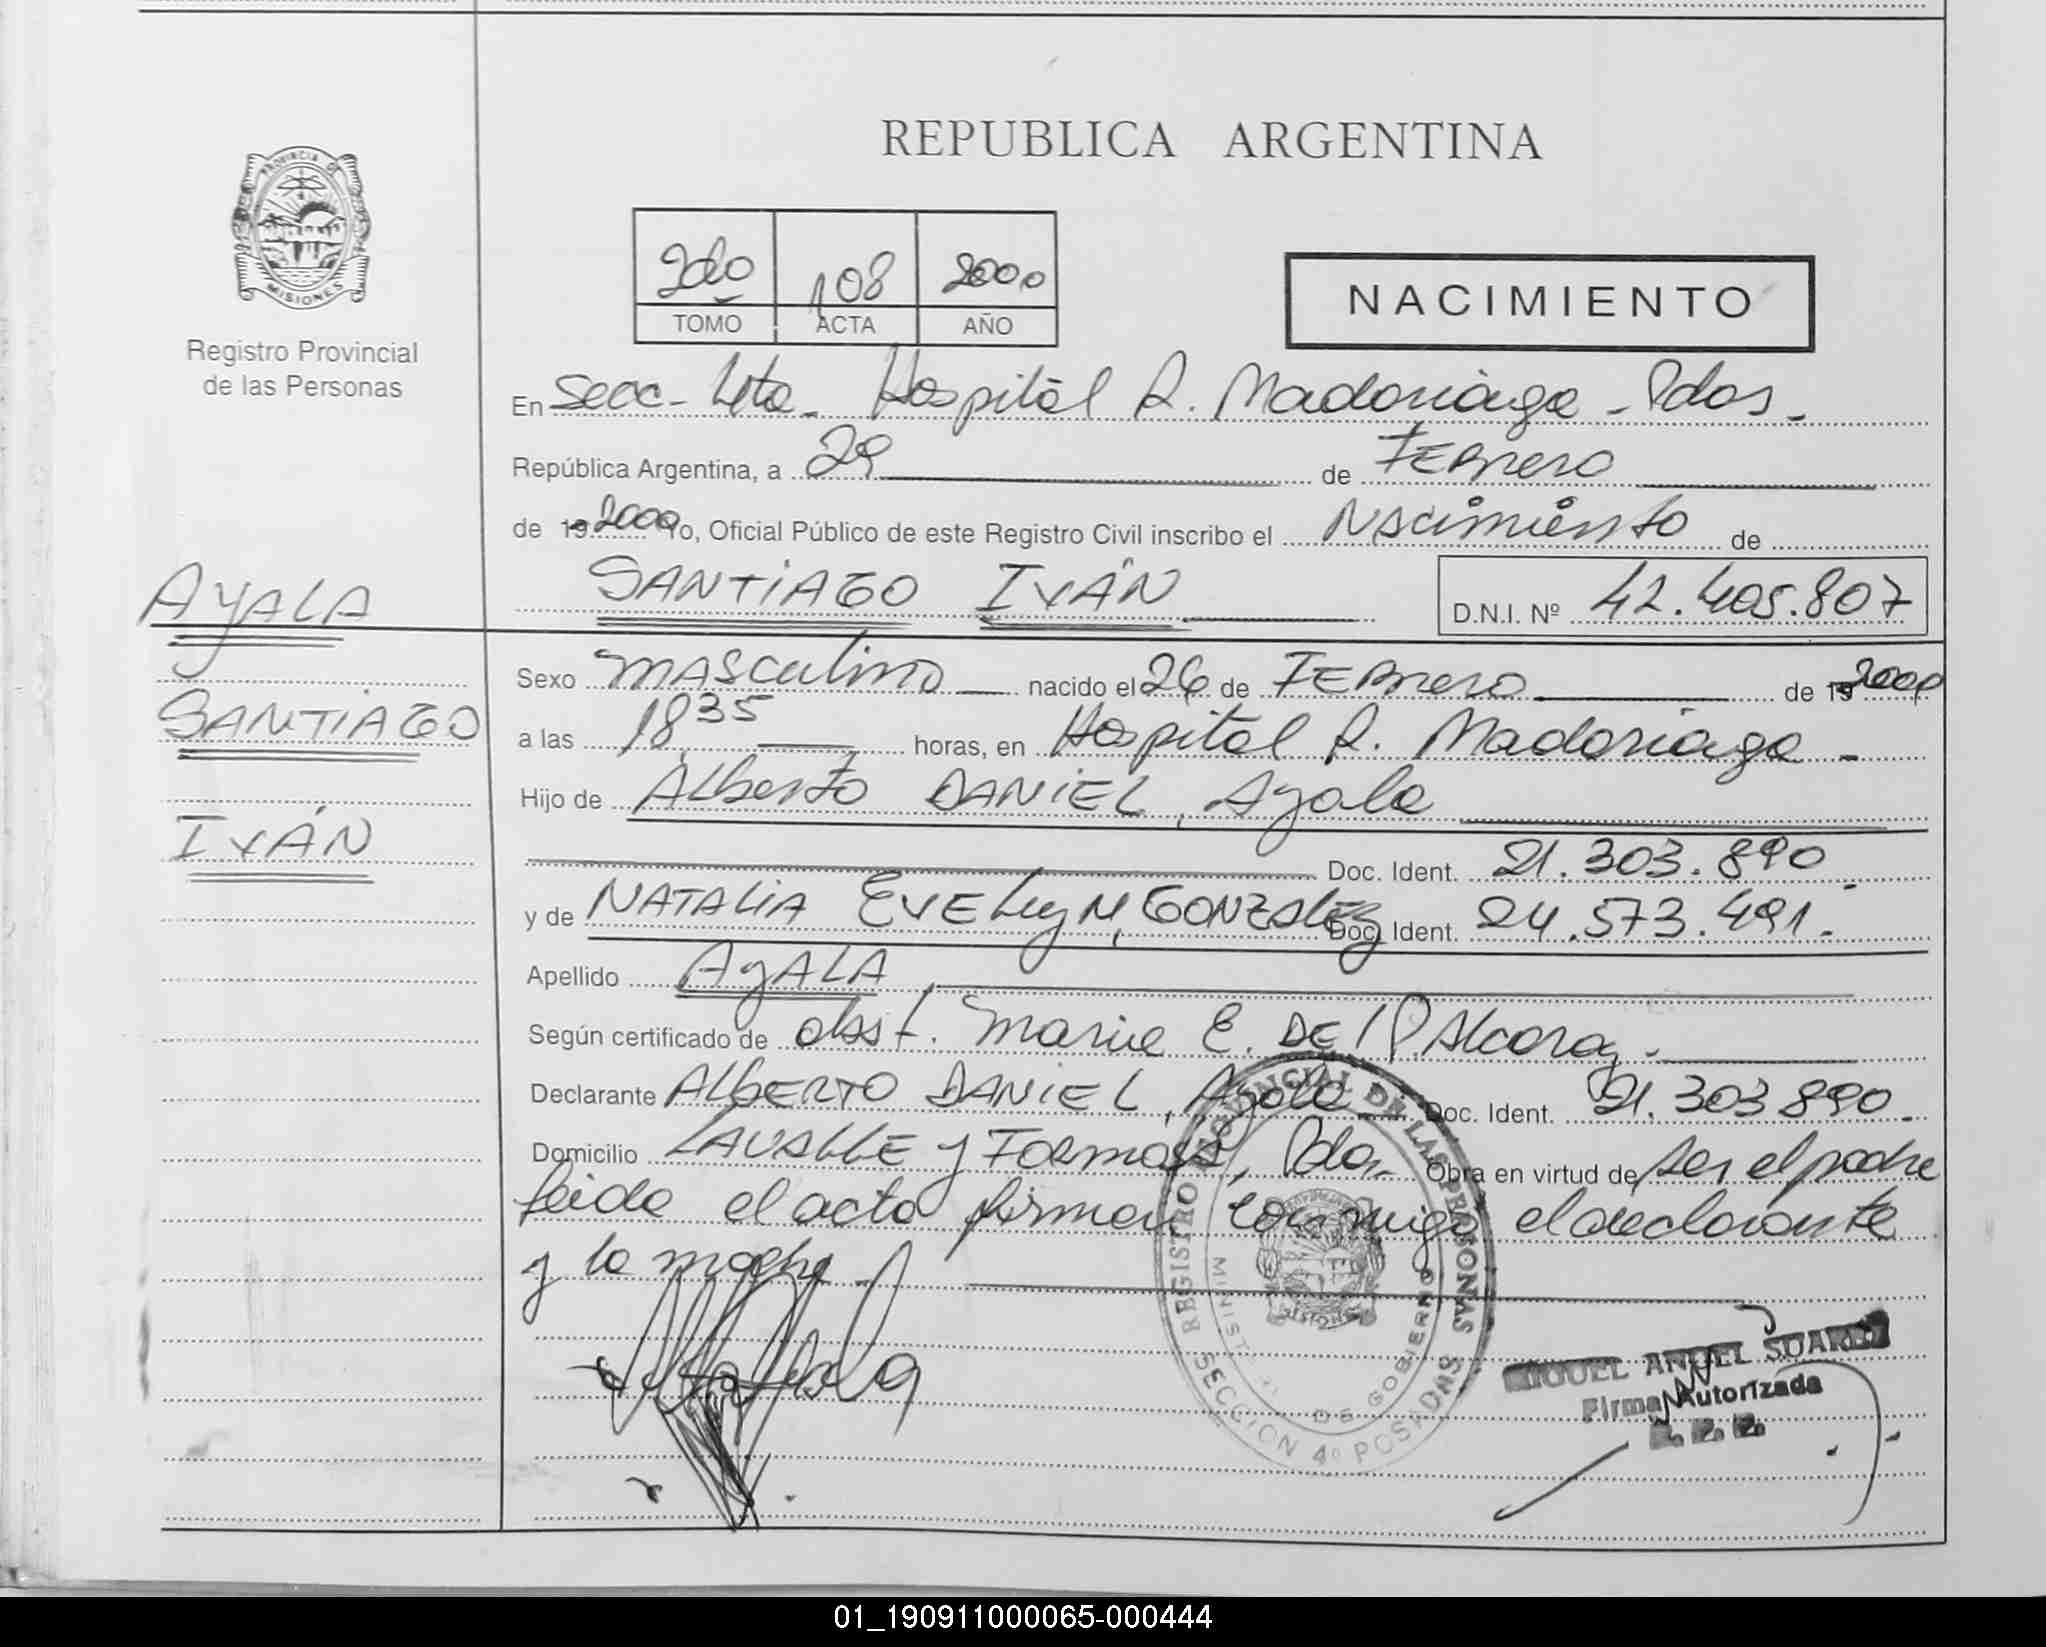 REPUBLICA ARGENTINA
PROVINCIA DE MISIONES
Registro Provincial
de las Personas
2do 108 2000
TOMO ACTA AÑO
NACIMIENTO
En Secc. 4ta. Hospital R. Madariaga - Pdas.
República Argentina, a 29 de FEBrero
de 19 2000 Yo, Oficial Público de este Registro Civil inscribo el Nacimiento de
SANTIAGO IVÁN D.N.I. Nº 42.405.807
AYALA
SANTIAGO
IVÁN
Sexo masculino nacido el 26 de FEBrero de 19 2000
a las 18,35 horas, en Hospital R. Madariaga -
Hijo de Alberto DANIEL, Ayala
Doc. Ident. 21.303.890.
y de NATALIA EVELyN, GONZALEZ Doc. Ident. 24.573.491.
Apellido AyALA
Según certificado de obst. Maria E. DEl P Alcaraz.
Declarante ALBERTO DANIEL, Ayala Doc. Ident. 21.303.890.
Domicilio LAVALLE y Formosa, Pdas. Obra en virtud de ser el padre
leida el acta firman conmigo el declarante
y la madre
REGISTRO PROVINCIAL DE LAS PERSONAS
MINISTERIO DE GOBIERNO
SECCION 4º POSADAS
MIGUEL ANGEL SUAREZ
Firma Autorizada
01_190911000065-000444